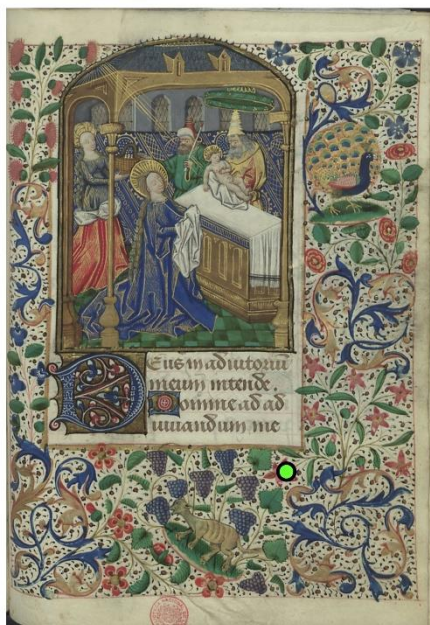 Deus in adiutoriū
meum intende.
Domine ad ad
iuuandum me